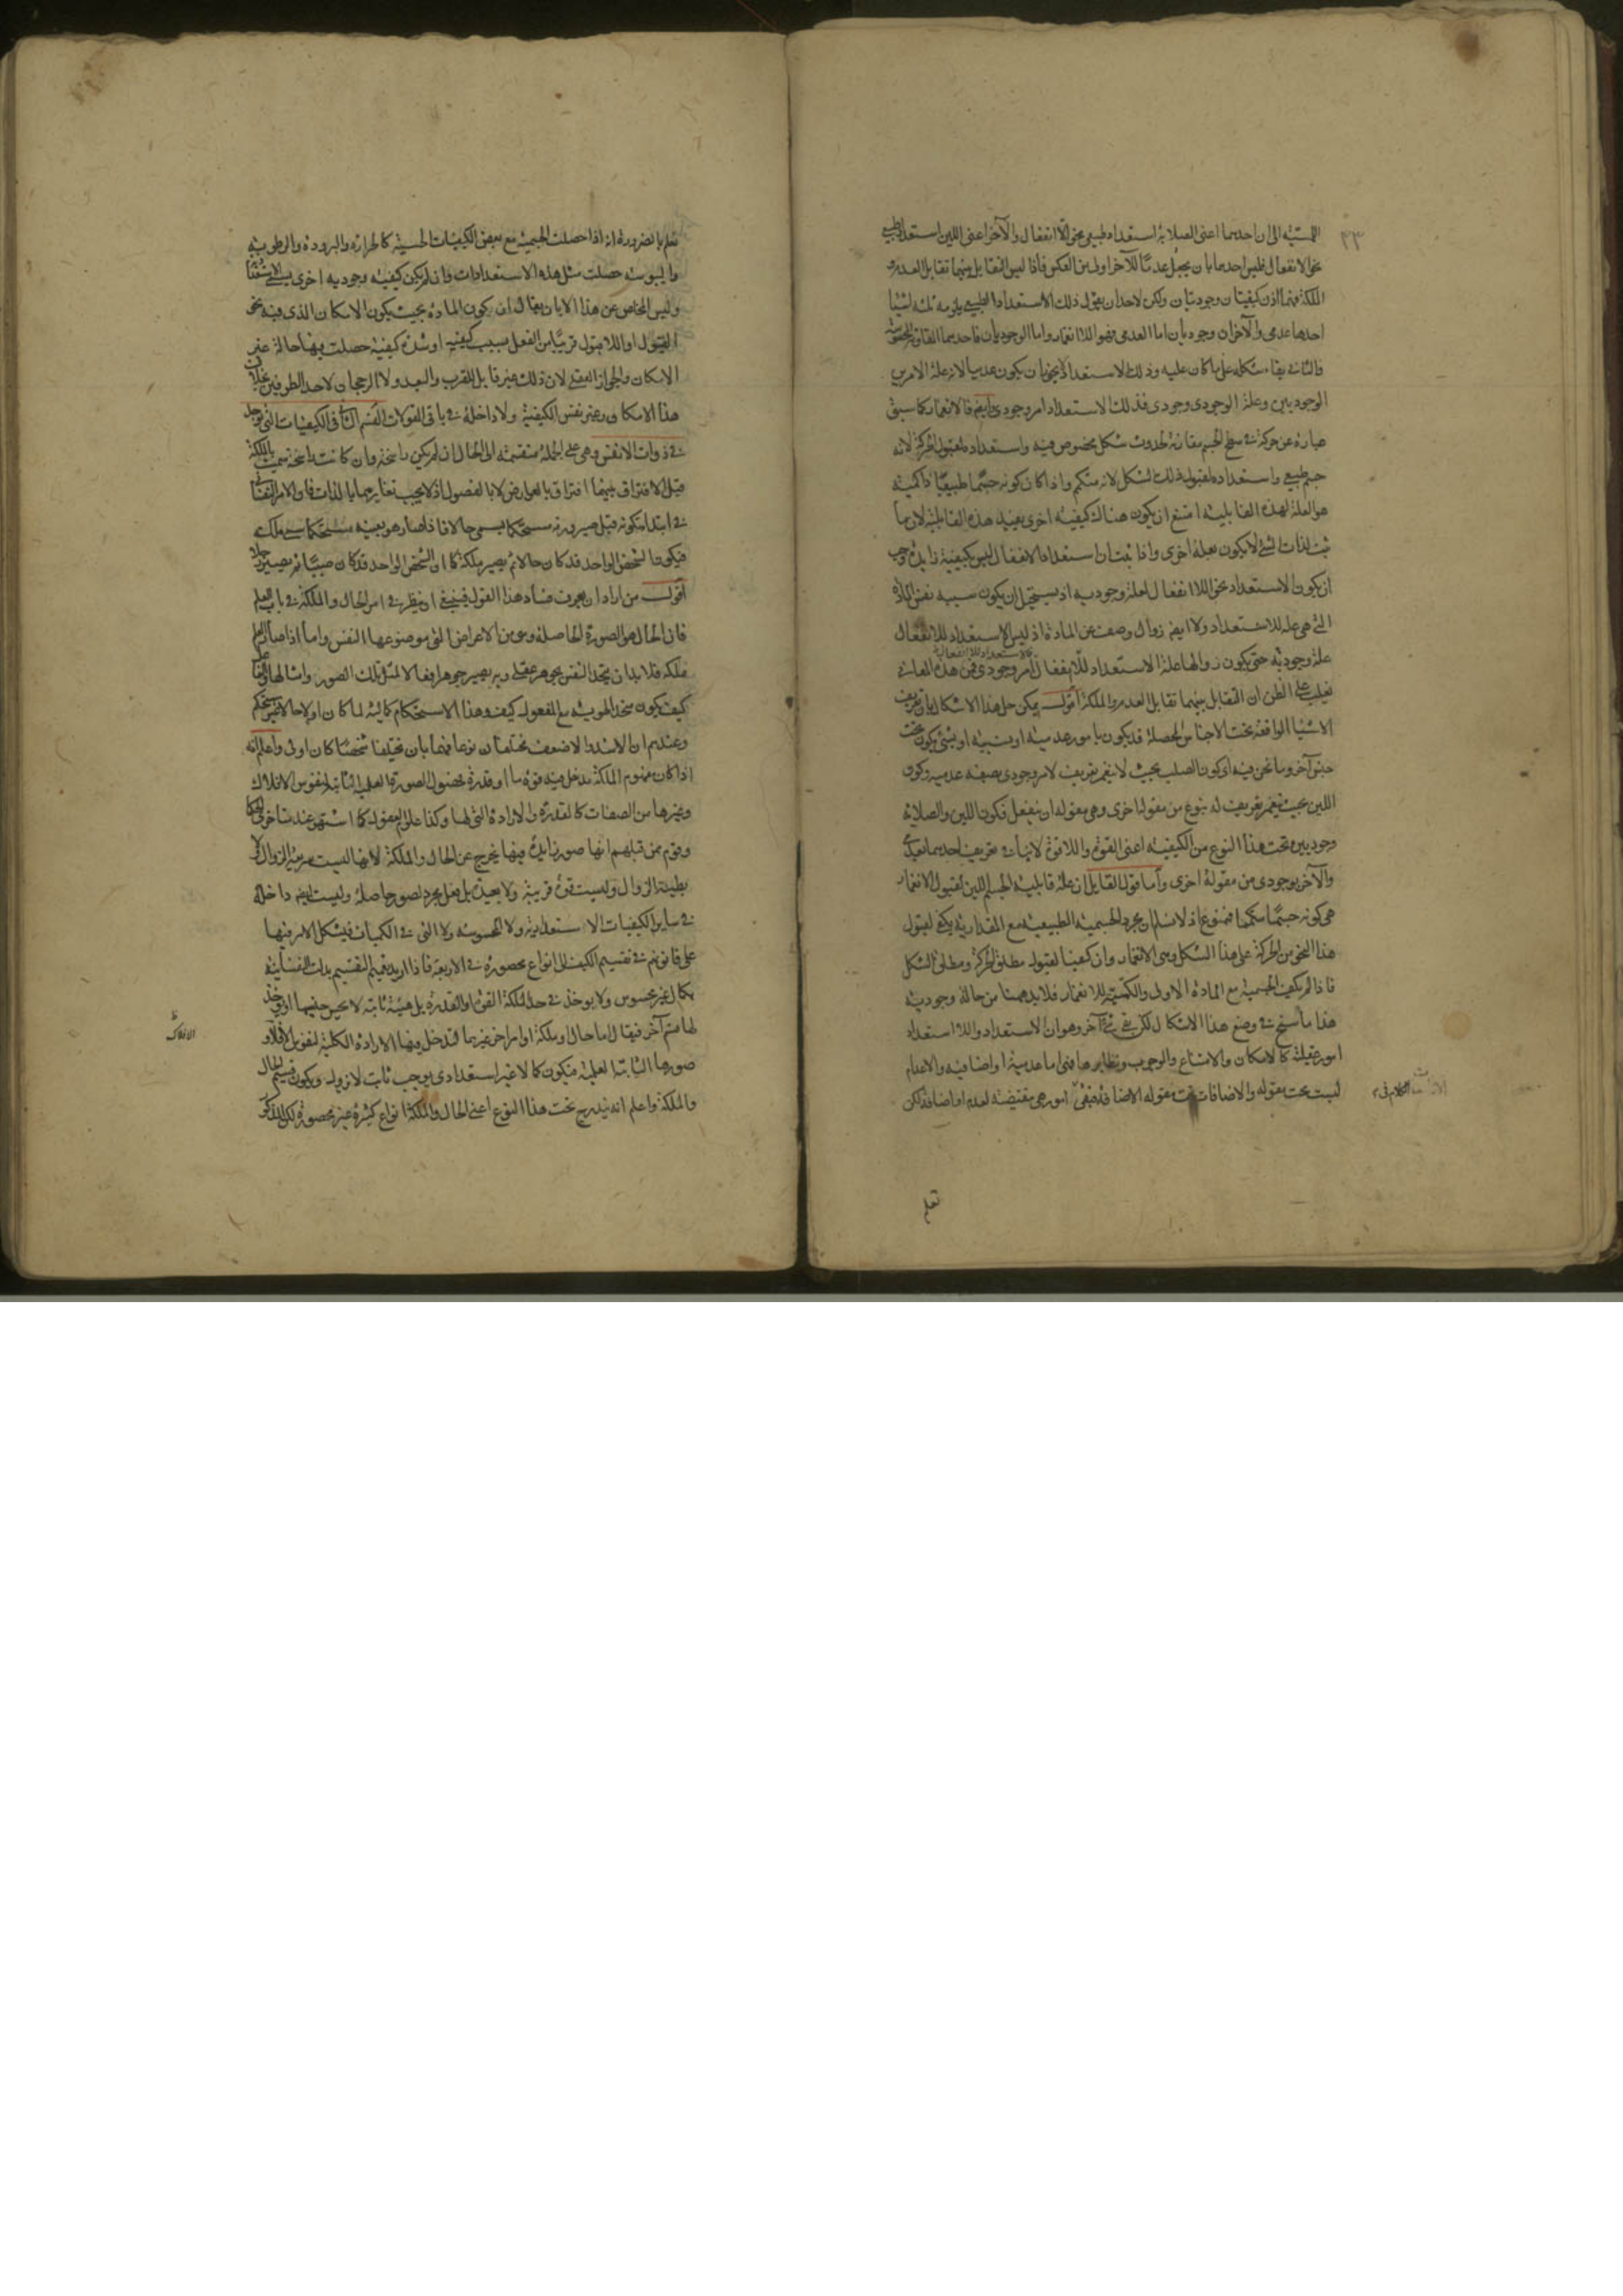 ٢٣
الى ان احديهما اعنى الصلابة استعداد طبيعى نحو اللاانفعال والآخر اعنى اللين استعداد طبيعى
نحو الانفعال فليس احدهما بان يجعل عدمًا للآخر اولى من العكس فاذا ليس التقابل بينهما تقابل العدم و
الملكة فهما اذن كيفيتان وجوديتان ولكن لاحد ان يقول ذلك الاستعداد الطبيعى يلزمه ثلثة اشيا
احدها عدمى والآخران وجوديان اما العدمى فهو اللاانغمار واما الوجوديان فاحديهما المقاومة المحسوسة
والثانى بقاء شكله على ما كان عليه وذلك الاستعداد لا يجوز ان يكون عدميا لانه علة الامرين
الوجوديين وعلة الوجودى وجودى فذلك الاستعداد امر وجودى فالانغمار كما سبق
عبارة عن حركة فى سطح الجسم مقارنة لحدوث شكل مخصوص فيه واستعداده لقبول الحركة لانه
جسم طبيعى واستعداده لقبول ذلك الشكل لانه متكمم واذا كان كونه جسمًا طبيعيًا ذا كمية
هو العلة لهذه القابلية امتنع ان يكون هناك كيفية اخرى يفيد هذه القابلية لان ما
ثبت لذات الشئ لا يكون بعلة اخرى واذا ثبت ان استعداد الانفعال ليس بكيفية زايدة وجب
ان يكون الاستعداد نحو اللاانفعال لعلة وجودية اذ يستحيل ان يكون سببه نفس المادة
التى هى علة للاستعداد ولا ايضا زوال وصف عن المادة اذ ليس الاستعداد للانفعال
علة وجودية حتى يكون زوالها علة الاستعداد للاانفعال امر وجودى فمن هذه المعانى
يغلب على الظن ان التقابل بينهما تقابل العدم والملكة اقول يمكن حل هذا الاشكال بان تعريف
الاشيا الواقعة تحت الاجناس المحصلة قد يكون بامور عدمية او نسبية او بشئ يكون تحت
جنس آخر وما نحن فيه اى كون الصلب بحيث لا ينغمر تعريف لامر وجودى بصفة عدمية وكون
اللين بحيث ينغمر تعريف له بنوع من مقولة اخرى وهى مقولة ان ينفعل فكون اللين والصلابة
وجوديين تحت هذا النوع من الكيفية اعنى القوة واللاقوة لا ينافى تعريف احديهما بعدمى
والآخر بوجودى من مقولة اخرى واما قول القايل ان علة قابلية الجسم اللين لقبول الانغمار
هى كونه جسمًا متكمما فممنوع اذ لا نسلم ان مجرد الجسمية الطبيعية مع المقدارية يكفى لقبول
هذا النحو من الحركة على هذا الشكل وهى الانغمار وان كفيتا لقبول مطلق الحركة ومطلق الشكل
فاذا لم يكف الجسمية مع المادة الاولى والكمية للانغمار فلا بد هنا من حالة وجودية
هذا ما سنح فى وضع هذا الاشكال لكن بقى شئ آخر وهو ان الاستعداد واللااستعداد
امور عقلية كالامكان والامتناع والوجوب ونظايرها فهى اما عدمية او اضافية والاعدام
ليست تحت مقولة والاضافات تحت مقولة الاضافة فبقى امور هى مقتضية لعدم او اضافة لكن
الكلام فى
تعلم
تعلم بالضرورة انه اذا حصلت الجسمية مع بعض الكيفيات الحسية كالحرارة والبرودة والرطوبة
واليبوسة حصلت مثل هذه الاستعدادات وان لم يكن كيفية وجودية اخرى
وليس المخلص عن هذا الا بان يقال ان كون المادة بحيث يكون الامكان الذى فيه نحو
القبول او اللاقبول قريبًا من الفعل بسبب كيفية او شدة كيفية حصلت بها حالة غير
الامكان والجواز العقلى لان ذلك غير قابل للقرب والبعد ولا الرجحان لاحد الطرفين بخلاف
هذا الامكان وغير نفس الكيفية ولا داخلة فى باقى المقولات القسم الثالث فى الكيفيات التى توجد
فى ذوات الانفس وهى على الجملة منقسمة الى الحال ان لم يكن راسخة وان كانت راسخة سميت بالملكة
قيل الافتراق بينهما افتراق بالعوارض لا بالفصول اذ لا يجب تغايرهما بالذات فان الامر النفسانى
فى ابتداء تكونه قبل صيرورته مستحكما يسمى حالا فاذا صار هو بعينه مستحكما سمى ملكة
فيكون الشخص الواحد قد كان حالا ثم يصير ملكة كما ان الشخص الواحد قد كان صبيًا ثم يصير رجلا
اقول من اراد ان يعرف فساد هذا القول فينبغى ان ينظر فى امر الحال والملكة فى باب العلم
فان الحال هو الصورة الحاصلة وهى من الاعراض التى موضوعها النفس واما اذا صار العلم
ملكة فلا بد ان يتحد النفس بجوهر عقلى وبه يصير جوهرا فعالا لمثل تلك الصور وامثالها
كيف يكون متحد الهوية مع المفعول كيف وهذا الاستحكام كمالية لما كان اولا حالا غير مستحكم
وعندهم ان الاشد والاضعف مختلفان نوعا فهما بان يختلفا شخصًا كان اولى واعلم انه
اذا كان مفهوم الملكة يدخل فيه قوة ما او قدرة فحضول الصورة العلمية الثابتة لنفوس الافلاك
وغيرها من الصفات كالقدرة والارادة التى لها وكذا علوم العقول كما اشتهر عند متاخرى الحكما
وقوم ممن قبلهم انها صور زايدة فيها يخرج عن الحال والملكة لانها ليست سريعة الزوال ولا
بطيئة الزوال وليست قوة قريبة ولا بعيدة بل بفعل مجرد بصور حاصلة وليست ايضا داخلة
فى ساير الكيفيات الاستعدادية ولا المحسوسة ولا التى فى الكميات فيشكل الامر فيها
على قانونهم فى تقسيم الكيف الى انواع محصورة فى الاربعة فاذا اريد تعميم التقسيم بدلت النفسانية
بكمال غير محسوس ولا يوخذ فى حد الملكة القوة والقدرة بل هيئة ثابتة لا يحس جنسها او يوخذ
لها قسم آخر فيقال اما حال وملكة او امر آخر غيرهما فتدخل فيها الارادة الكلية لنفوس الافلاك و
صورها الثابتة العلمية فيكون كمالا غير استعدادى يوجب ثابت لا يزول ويكون قسيم الحال
والملكة واعلم انه يندرج تحت هذا النوع اعنى الحال والملكة انواع كثيرة غير محصورة لكن المذكور
ظ
الافلاك